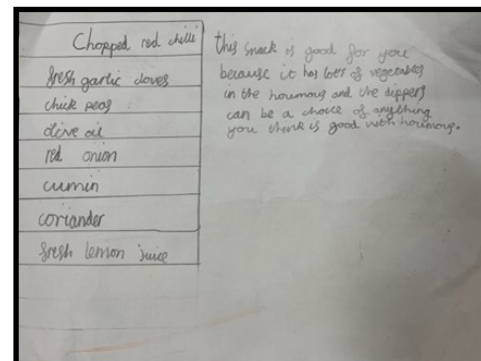 Chopped red chilli
fresh garlic cloves
chick peas
olive oil
red onion
cumin
coriander
fresh lemon juice
this snack is good for you
because it has lots of vegetables
in the houmous and the dippers
can be a choice of anything
you think is good with houmous.